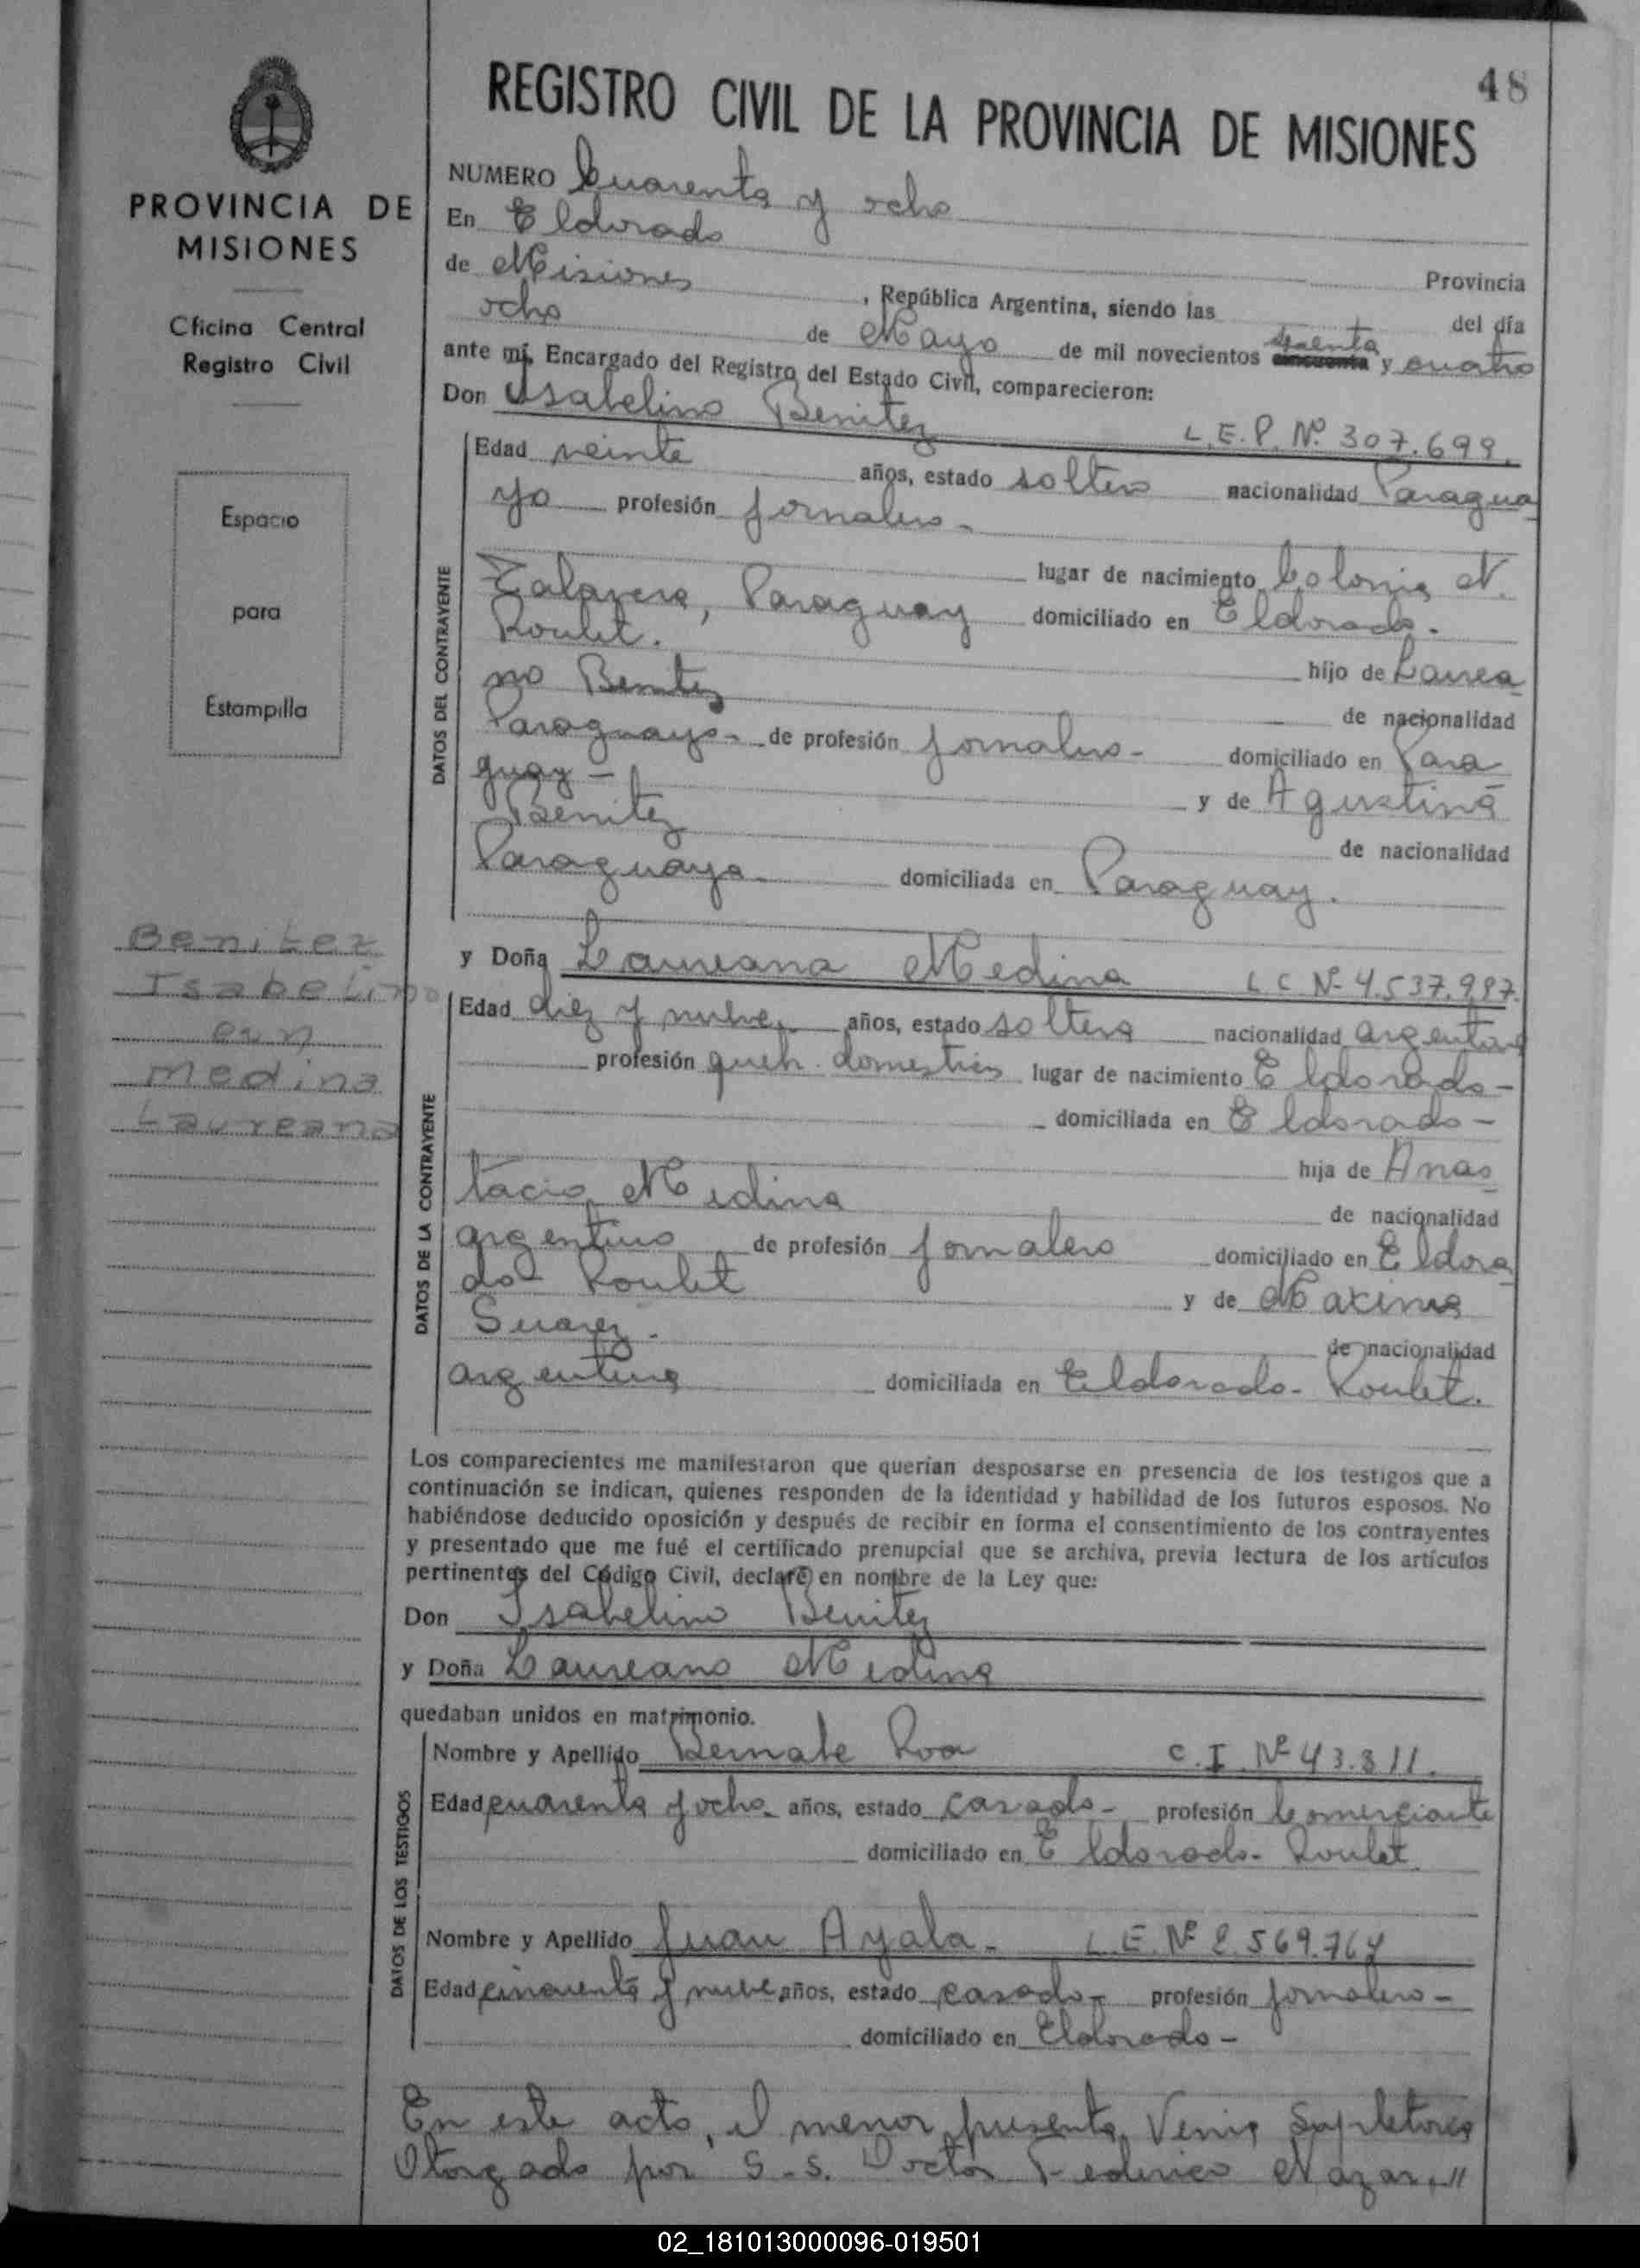 48
REGISTRO CIVIL DE LA PROVINCIA DE MISIONES
PROVINCIA DE
MISIONES
Oficina Central
Registro Civil
Espacio
para
Estampilla
Benitez
Isabelino
con
Medina
Laureana
NUMERO Cuarenta y ocho
En Eldorado Provincia
de Misiones, República Argentina, siendo las del día
ocho de Mayo de mil novecientos cincuenta sesenta y cuatro
ante mí, Encargado del Registro del Estado Civil, comparecieron:
Don Isabelino Benitez L.E.P. Nº 307.699.
DATOS DEL CONTRAYENTE
Edad veinte años, estado soltero nacionalidad Paragua
yo profesión jornalero-
lugar de nacimiento Colonia N.
Talavera, Paraguay domiciliado en Eldorado.
Roulet.
hijo de Laurea
no Benitez de nacionalidad
Paraguayo- de profesión jornalero- domiciliado en Para
guay- y de Agustina
Benitez de nacionalidad
Paraguaya- domiciliada en Paraguay.
y Doña Laureana Medina L C Nº 4.537.987.
DATOS DE LA CONTRAYENTE
Edad diez y nueve años, estado soltera nacionalidad argentina
profesión queh. domesticos lugar de nacimiento Eldorado-
domiciliada en Eldorado-
hija de Anas
tacio Medina de nacionalidad
argentino de profesión jornalero domiciliado en Eldora
do- Roulet y de Maxima
Suarez. de nacionalidad
argentina domiciliada en Eldorado- Roulet.
Los comparecientes me manifestaron que querían desposarse en presencia de los testigos que a
continuación se indican, quienes responden de la identidad y habilidad de los futuros esposos. No
habiéndose deducido oposición y después de recibir en forma el consentimiento de los contrayentes
y presentado que me fué el certificado prenupcial que se archiva, previa lectura de los artículos
pertinentes del Código Civil, declaré en nombre de la Ley que:
Don Isabelino Benitez
y Doña Laureana Medina
quedaban unidos en matrimonio.
DATOS DE LOS TESTIGOS
Nombre y Apellido Bernabe Roa C.I. Nº 43.811.
Edad cuarenta y ocho años, estado casado- profesión Comerciante
domiciliado en Eldorado- Roulet
Nombre y Apellido Juan Ayala- L.E. Nº 2.569.764
Edad cincuenta y nueve años, estado casado- profesión jornalero-
domiciliado en Eldorado-
En este acto, el menor presenta Venia Supletoria
Otorgado por S.S. Doctor Federico Nazar,//
02_181013000096-019501